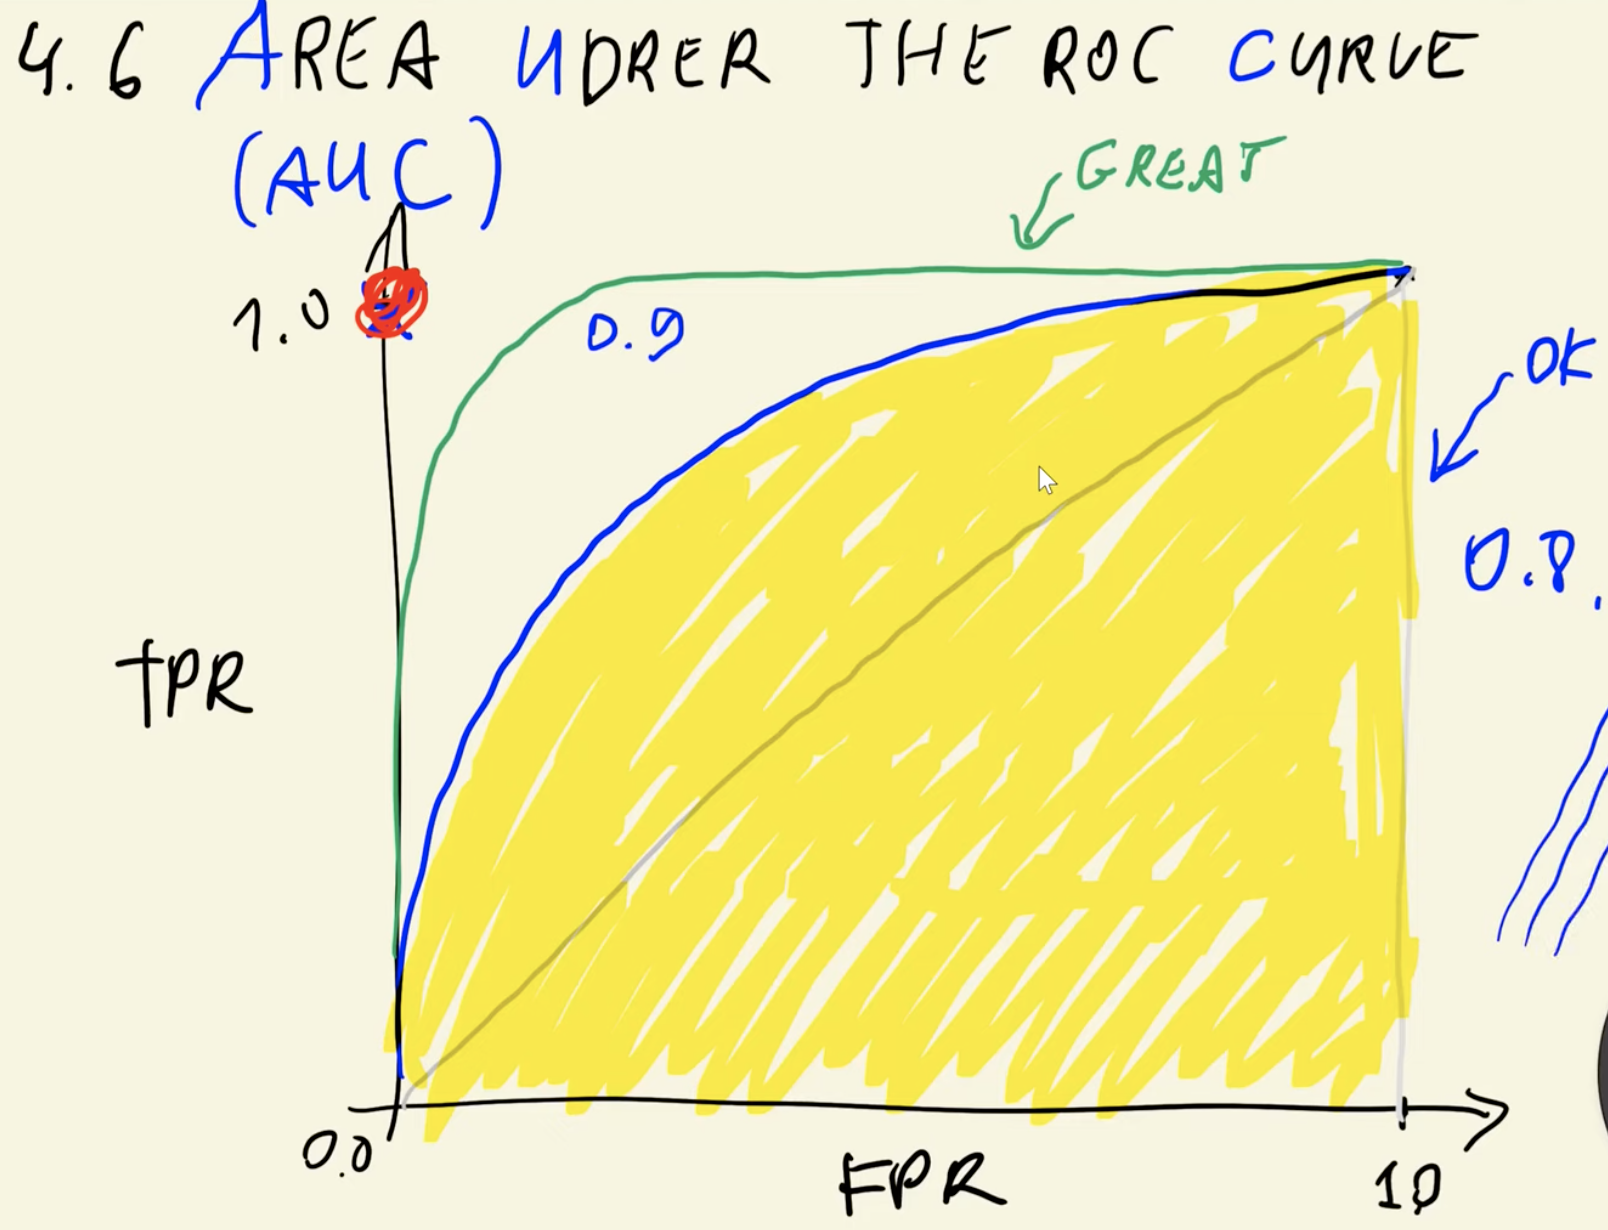 4.6 AREA UDRER THE ROC CURVE
(AUC)
GREAT
1.0
0.9
OK
0.8.
TPR
0.0
FPR
10